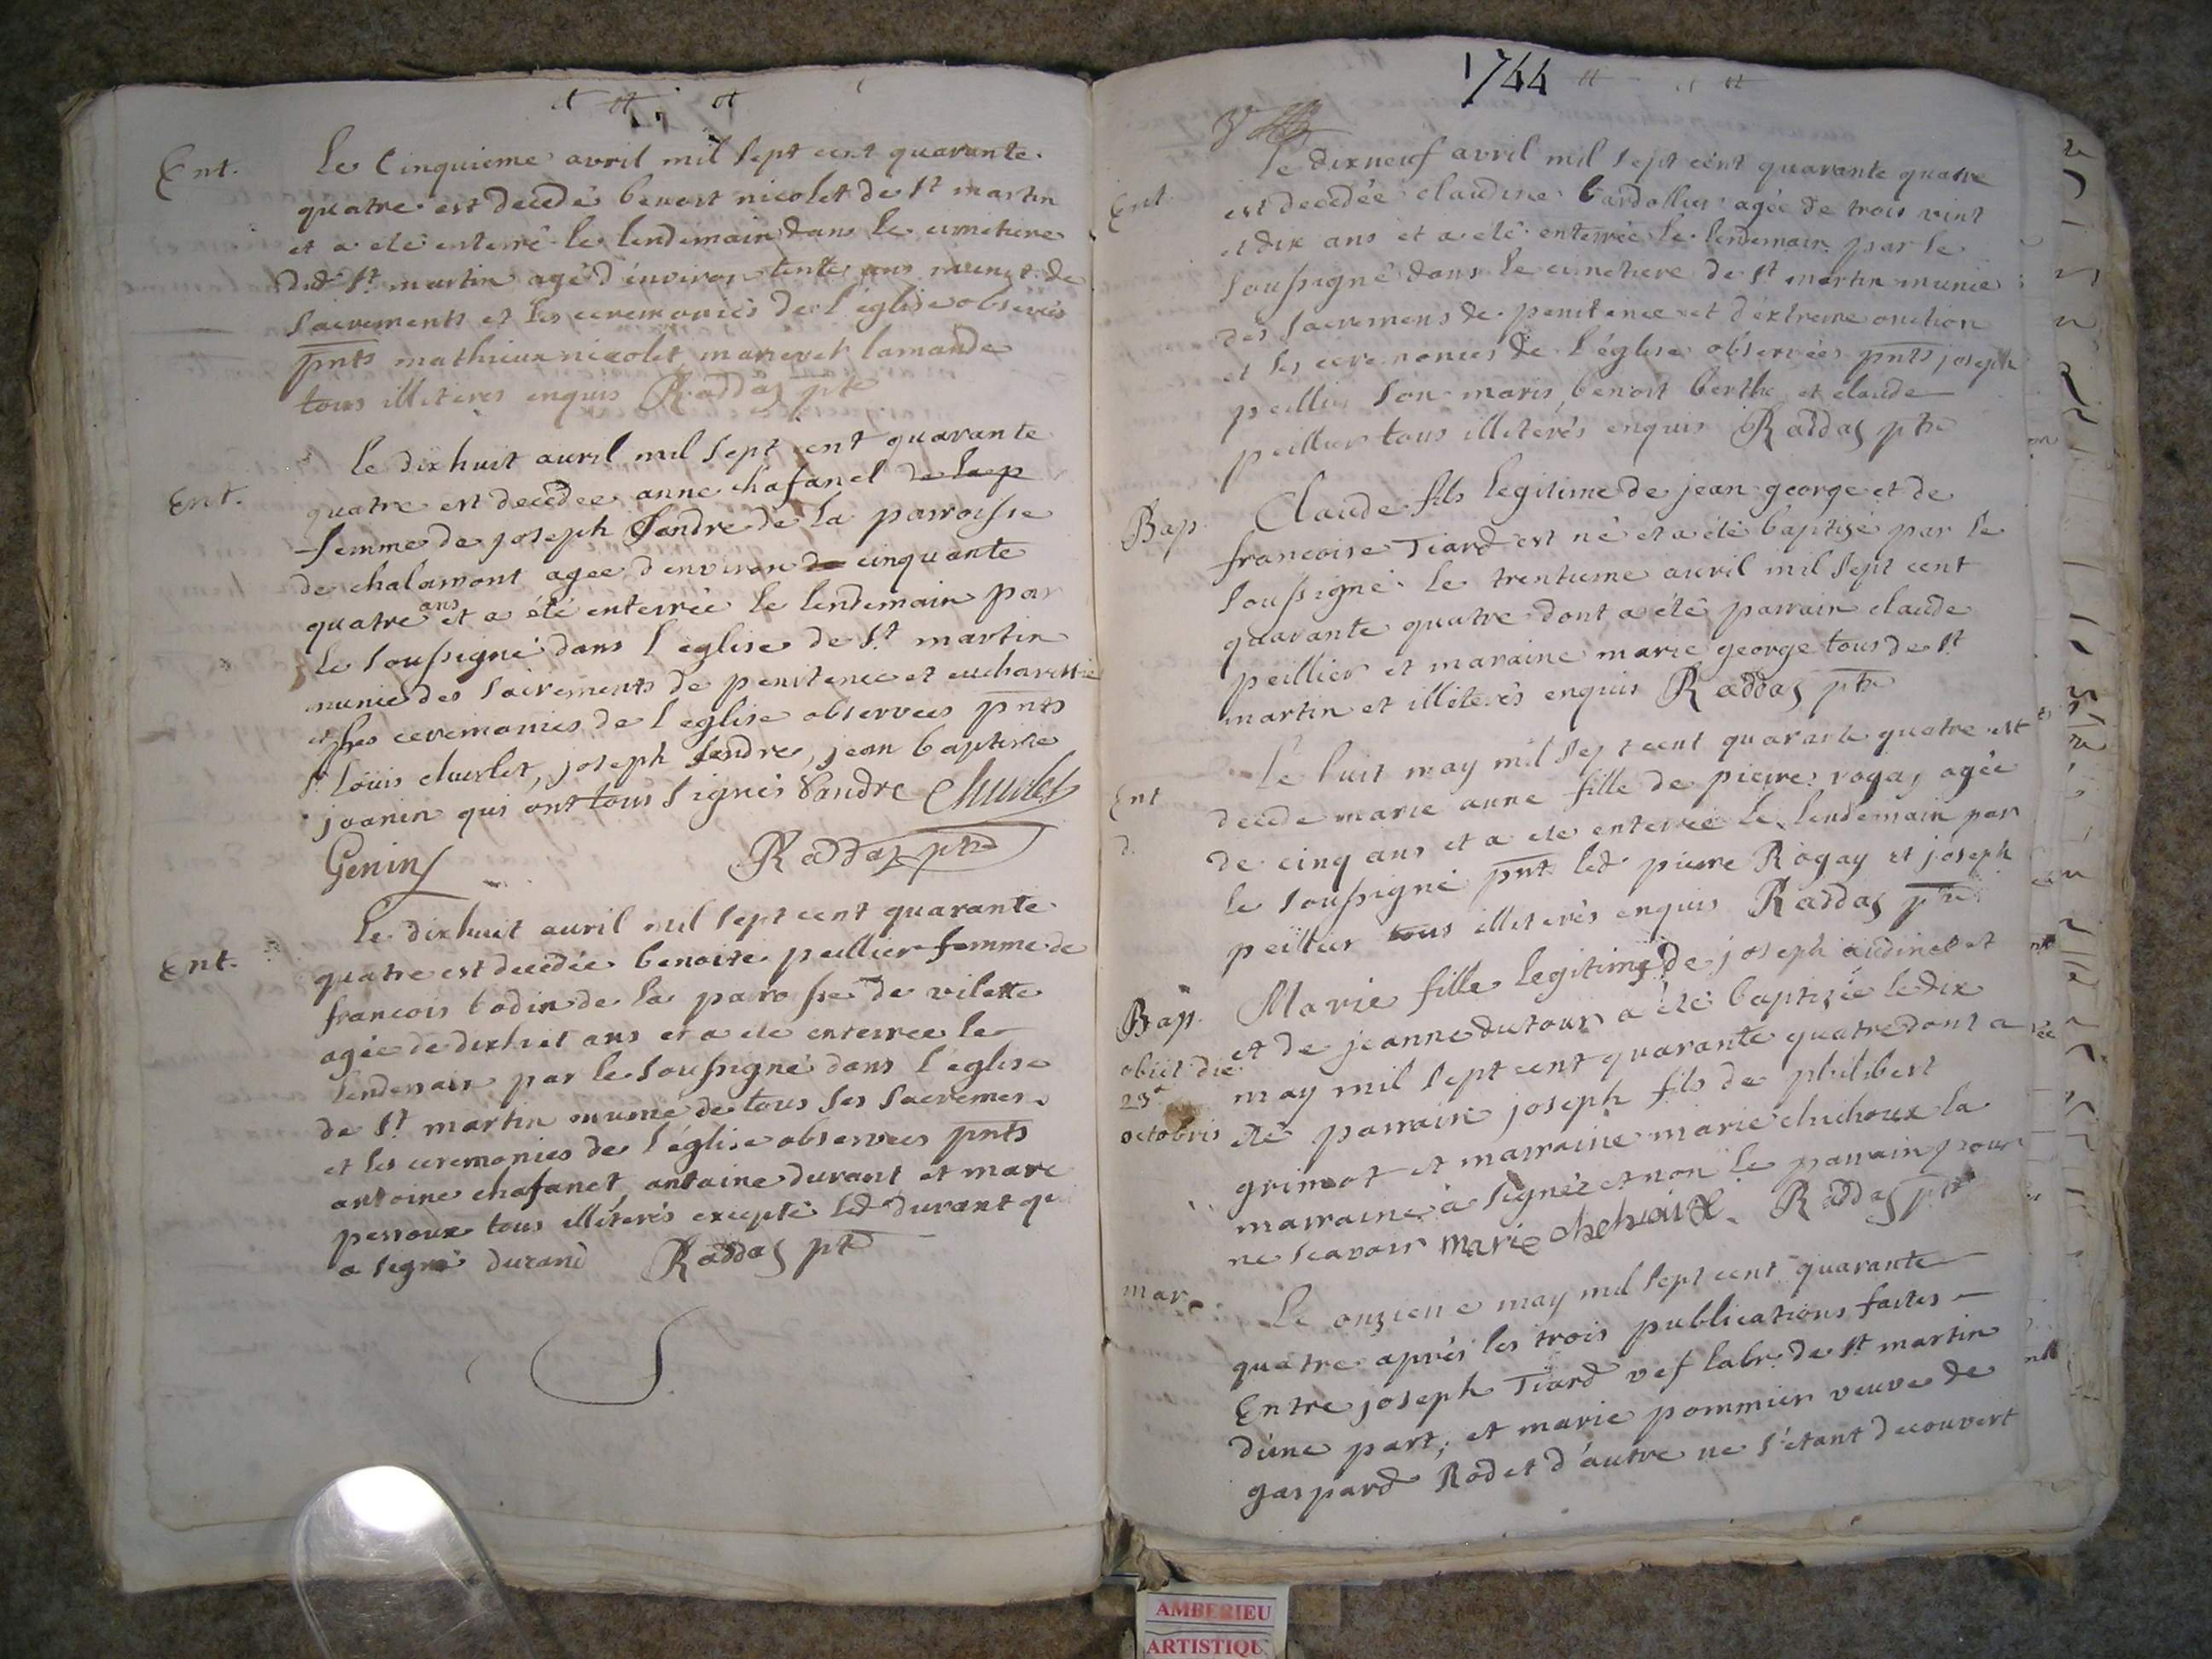 Ent.
Le Cinquieme avril mil sept cent quarante
quatre est decedé benoit nicolet de St martin
et a eté enterré le lendemain dans le cimetiere
dudt St martin agé d'environ tente ans muni de
sacrements et les ceremonies de l'église observés
pnts mathieux nicolet, lamande
tous illiteres enquis Raddaz ptre
Ent.
le dixhuit avril mil sept cent quarante
quatre est decedee anne chafanel de la p
femme de joseph Sandre de la parroisse
de chalamont agee d'environ de cinquante
quatre ans et a été enterrée le lendemain par
le soussigné dans l'eglise de St martin
munie des sacrements de penitence et eucharistie
et les ceremonies de l'eglise observees pnts
Sr Loüis chuslet, joseph Sandre, jean baptiste
joanin qui ont tous signés Sandre Chuslet
Genin Raddaz ptre
Ent.
le dixhuit avril mil sept cent quarante
quatre est decedée benoite peillier femme de
francois bodin de la paroisse de vilette
agée de dixhuit ans et a eté enterree le
lendemain par le soussigné dans l'église
de St martin munie de tous ses sacremens
et les ceremonies de l'église observees pnts
antoine chafanet, antoine durant et marc
perroux tous illiterés excepté led durant qui
a signé durand Raddaz ptre
1744
Ent
le dixneuf avril mil sept cent quarante quatre
est decedée claudine bardollier agée de trois vint
et dix ans et a eté enterrée le lendemain par le
soussigné dans le cimetiere de St martin munie
des sacremens de penitence et d'extreme onction
et les ceremonies de l'église observées pnts joseph
peillier son maris, benoit berthe et claude
peillier tous illiterés enquis Raddaz ptre
Bap
Claude fils legitime de jean george et de
francoise Tiard est né et a été baptisé par le
soussigné le trentieme avril mil sept cent
quarante quatre dont a été parrain claude
peillier et maraine marie george tous de St
martin et illiterés enquis Raddaz ptre
Ent
d.
Le huit may mil sept cent quarante quatre est
decede marie anne fille de pierre rogay agée
de cinq ans et a ete enterree le lendemain par
le soussigné pnt led pierre Rogay et joseph
peillier tous illiterés enquis Raddaz ptre
Bap
obiit die
23a
octobris
Marie fille legitime de joseph audinet et
et de jeanne dutour a été baptisée le dix
may mil sept cent quarante quatre dont a
été parrain joseph fils de philibert
grimot et marraine marie chichoux la
marraine a signée et non le parrain pour
ne scavoir marie chehoux Raddaz ptre
mar
Le onzieme may mil sept cent quarante
quatre après les trois publications faites
Entre joseph Tiard vef labr. de St martin
d'une part, et marie pommier veuve de
gaspard Rodet d'autre ne s'etant decouvert
AMBERIEU
ARTISTIQU